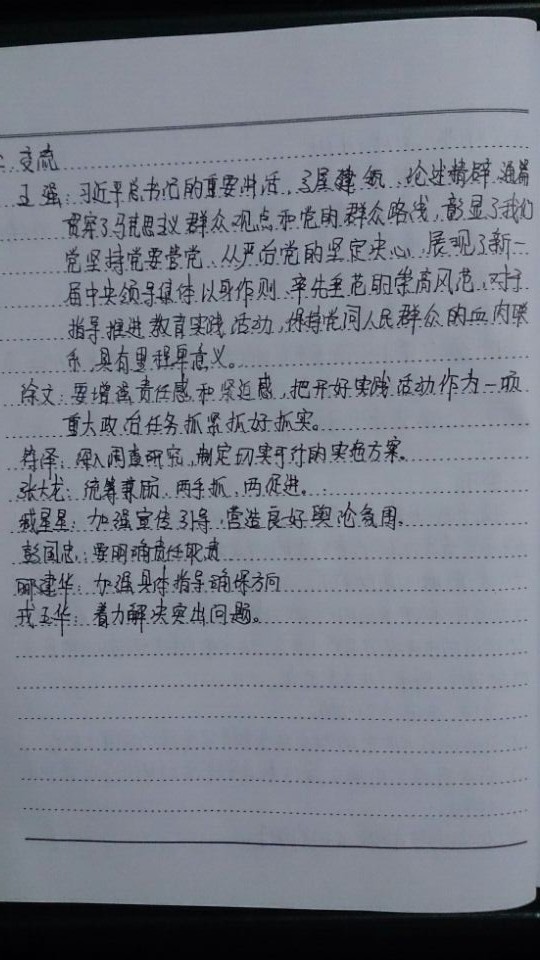 二、交流
王强:习近平总书记的重要讲话,高屋建瓴、论述精辟,通篇
贯穿了马克思主义群众观点和党的群众路线,彰显了我们
党坚持党要管党、从严治党的坚定决心,展现了新一
届中央领导集体以身作则、率先垂范的崇高风范,对于
指导推进教育实践活动,保持党同人民群众的血肉联
系,具有里程碑意义。
徐文:要增强责任感和紧迫感,把开好实践活动作为一项
重大政治任务抓紧抓好抓实。
符泽:深入调查研究,制定切实可行的实施方案。
张大龙:统筹兼顾,两手抓,两促进。
臧星星:加强宣传引导,营造良好舆论氛围。
彭国忠:要明确责任职责
邴建华:加强具体指导确保方向
玉华:着力解决突出问题。